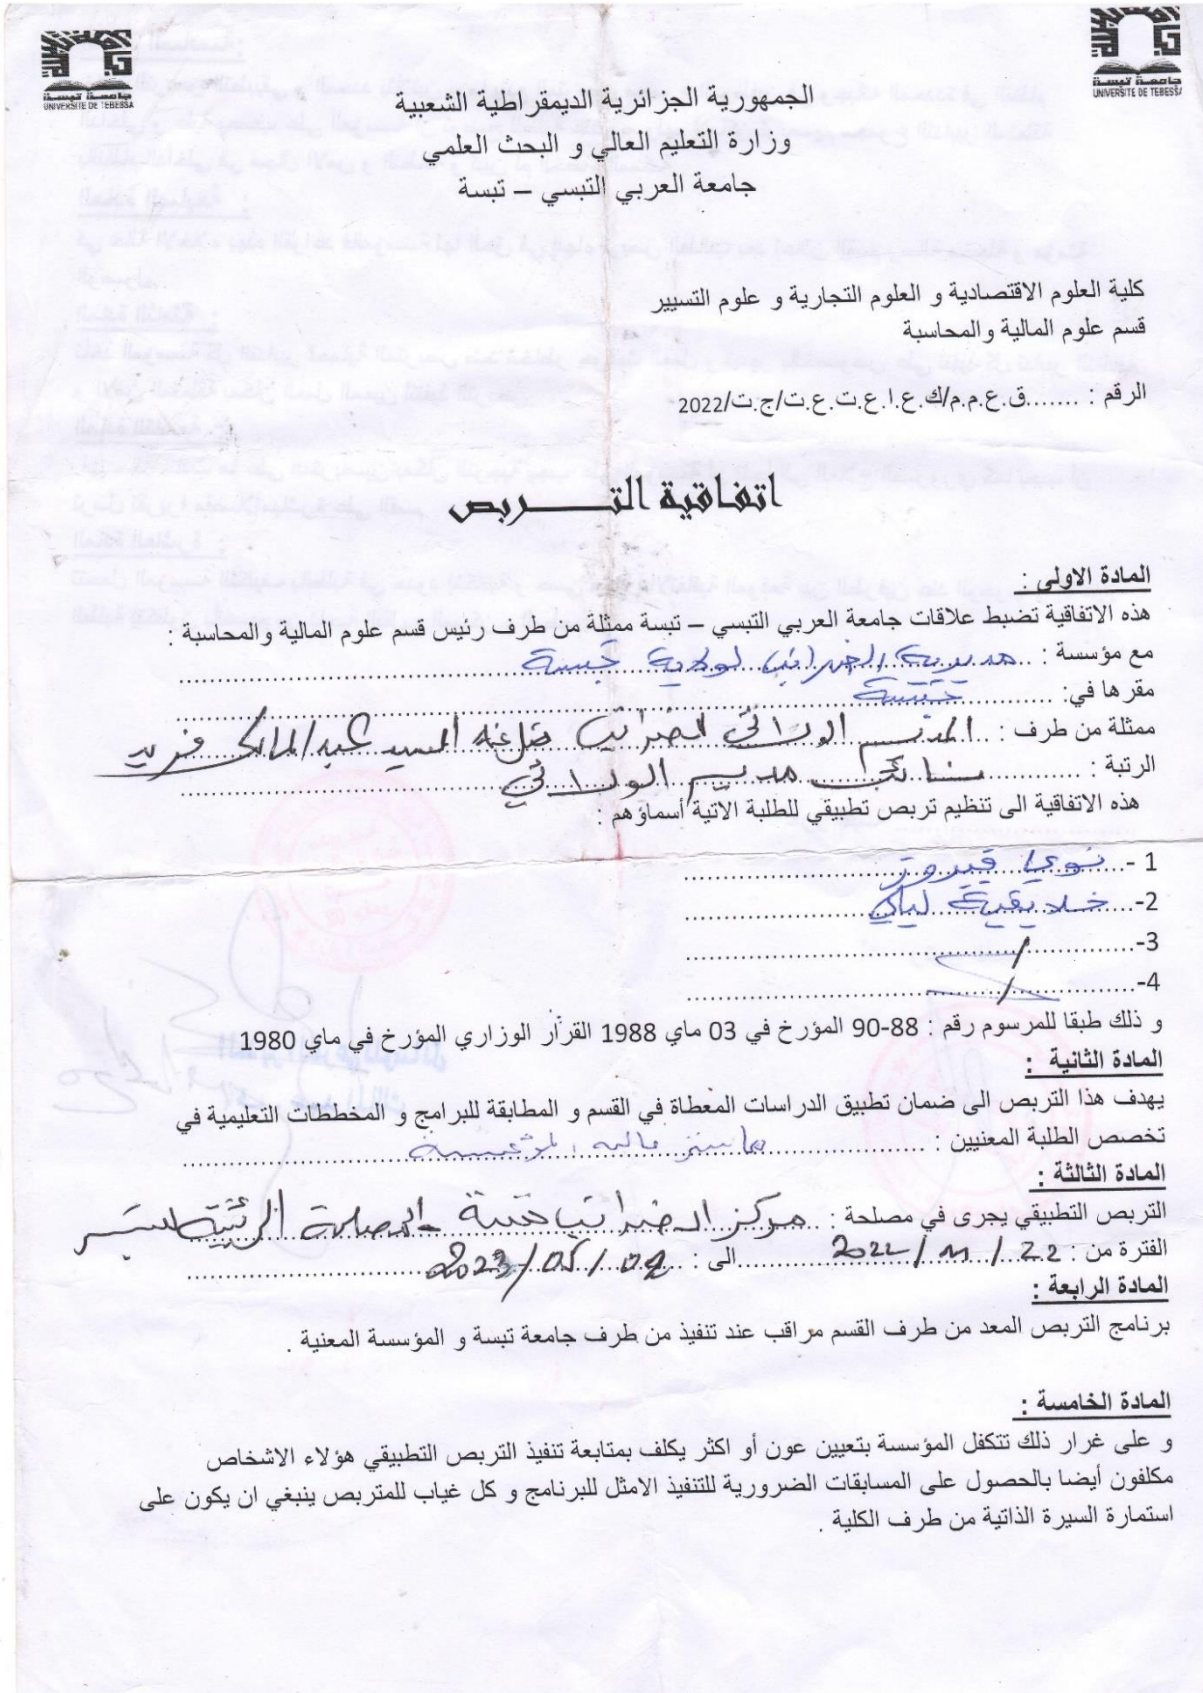 جامعة تبسة
UNIVERSITE DE TEBESSA
جامعة تبسة
UNIVERSITE DE TEBESSA
الجمهورية الجزائرية الديمقراطية الشعبية
وزارة التعليم العالي و البحث العلمي
جامعة العربي التبسي – تبسة
كلية العلوم الاقتصادية و العلوم التجارية و علوم التسيير
قسم علوم المالية والمحاسبة
الرقم : .......ق.ع.م.م/ك.ع.ا.ع.ت.ع.ت/ج.ت/2022
اتفاقية التـــربص
المادة الاولى :
هذه الاتفاقية تضبط علاقات جامعة العربي التبسي – تبسة ممثلة من طرف رئيس قسم علوم المالية والمحاسبة :
مع مؤسسة : مديرية الضرائب لولاية تبسة
مقرها في: تبسة
ممثلة من طرف : المدير الولائي للضرائب السيد عبد المالك فريد
الرتبة : مدير الولائي
هذه الاتفاقية الى تنظيم تربص تطبيقي للطلبة الاتية أسماؤهم :
1 -. نوي فيروز
2-. خلايفية ليلى
3-. /
4-. /
و ذلك طبقا للمرسوم رقم : 88-90 المؤرخ في 03 ماي 1988 القرار الوزاري المؤرخ في ماي 1980
المادة الثانية :
يهدف هذا التربص الى ضمان تطبيق الدراسات المعطاة في القسم و المطابقة للبرامج و المخططات التعليمية في
تخصص الطلبة المعنيين : ماستر مالية المؤسسة
المادة الثالثة :
التربص التطبيقي يجرى في مصلحة : مركز الضرائب تبسة - المصلحة الرئيسية
الفترة من : 22/11/2022 الى : 02/05/2023
المادة الرابعة :
برنامج التربص المعد من طرف القسم مراقب عند تنفيذ من طرف جامعة تبسة و المؤسسة المعنية .
المادة الخامسة :
و على غرار ذلك تتكفل المؤسسة بتعيين عون أو اكثر يكلف بمتابعة تنفيذ التربص التطبيقي هؤلاء الاشخاص
مكلفون أيضا بالحصول على المسابقات الضرورية للتنفيذ الامثل للبرنامج و كل غياب للمتربص ينبغي ان يكون على
استمارة السيرة الذاتية من طرف الكلية .